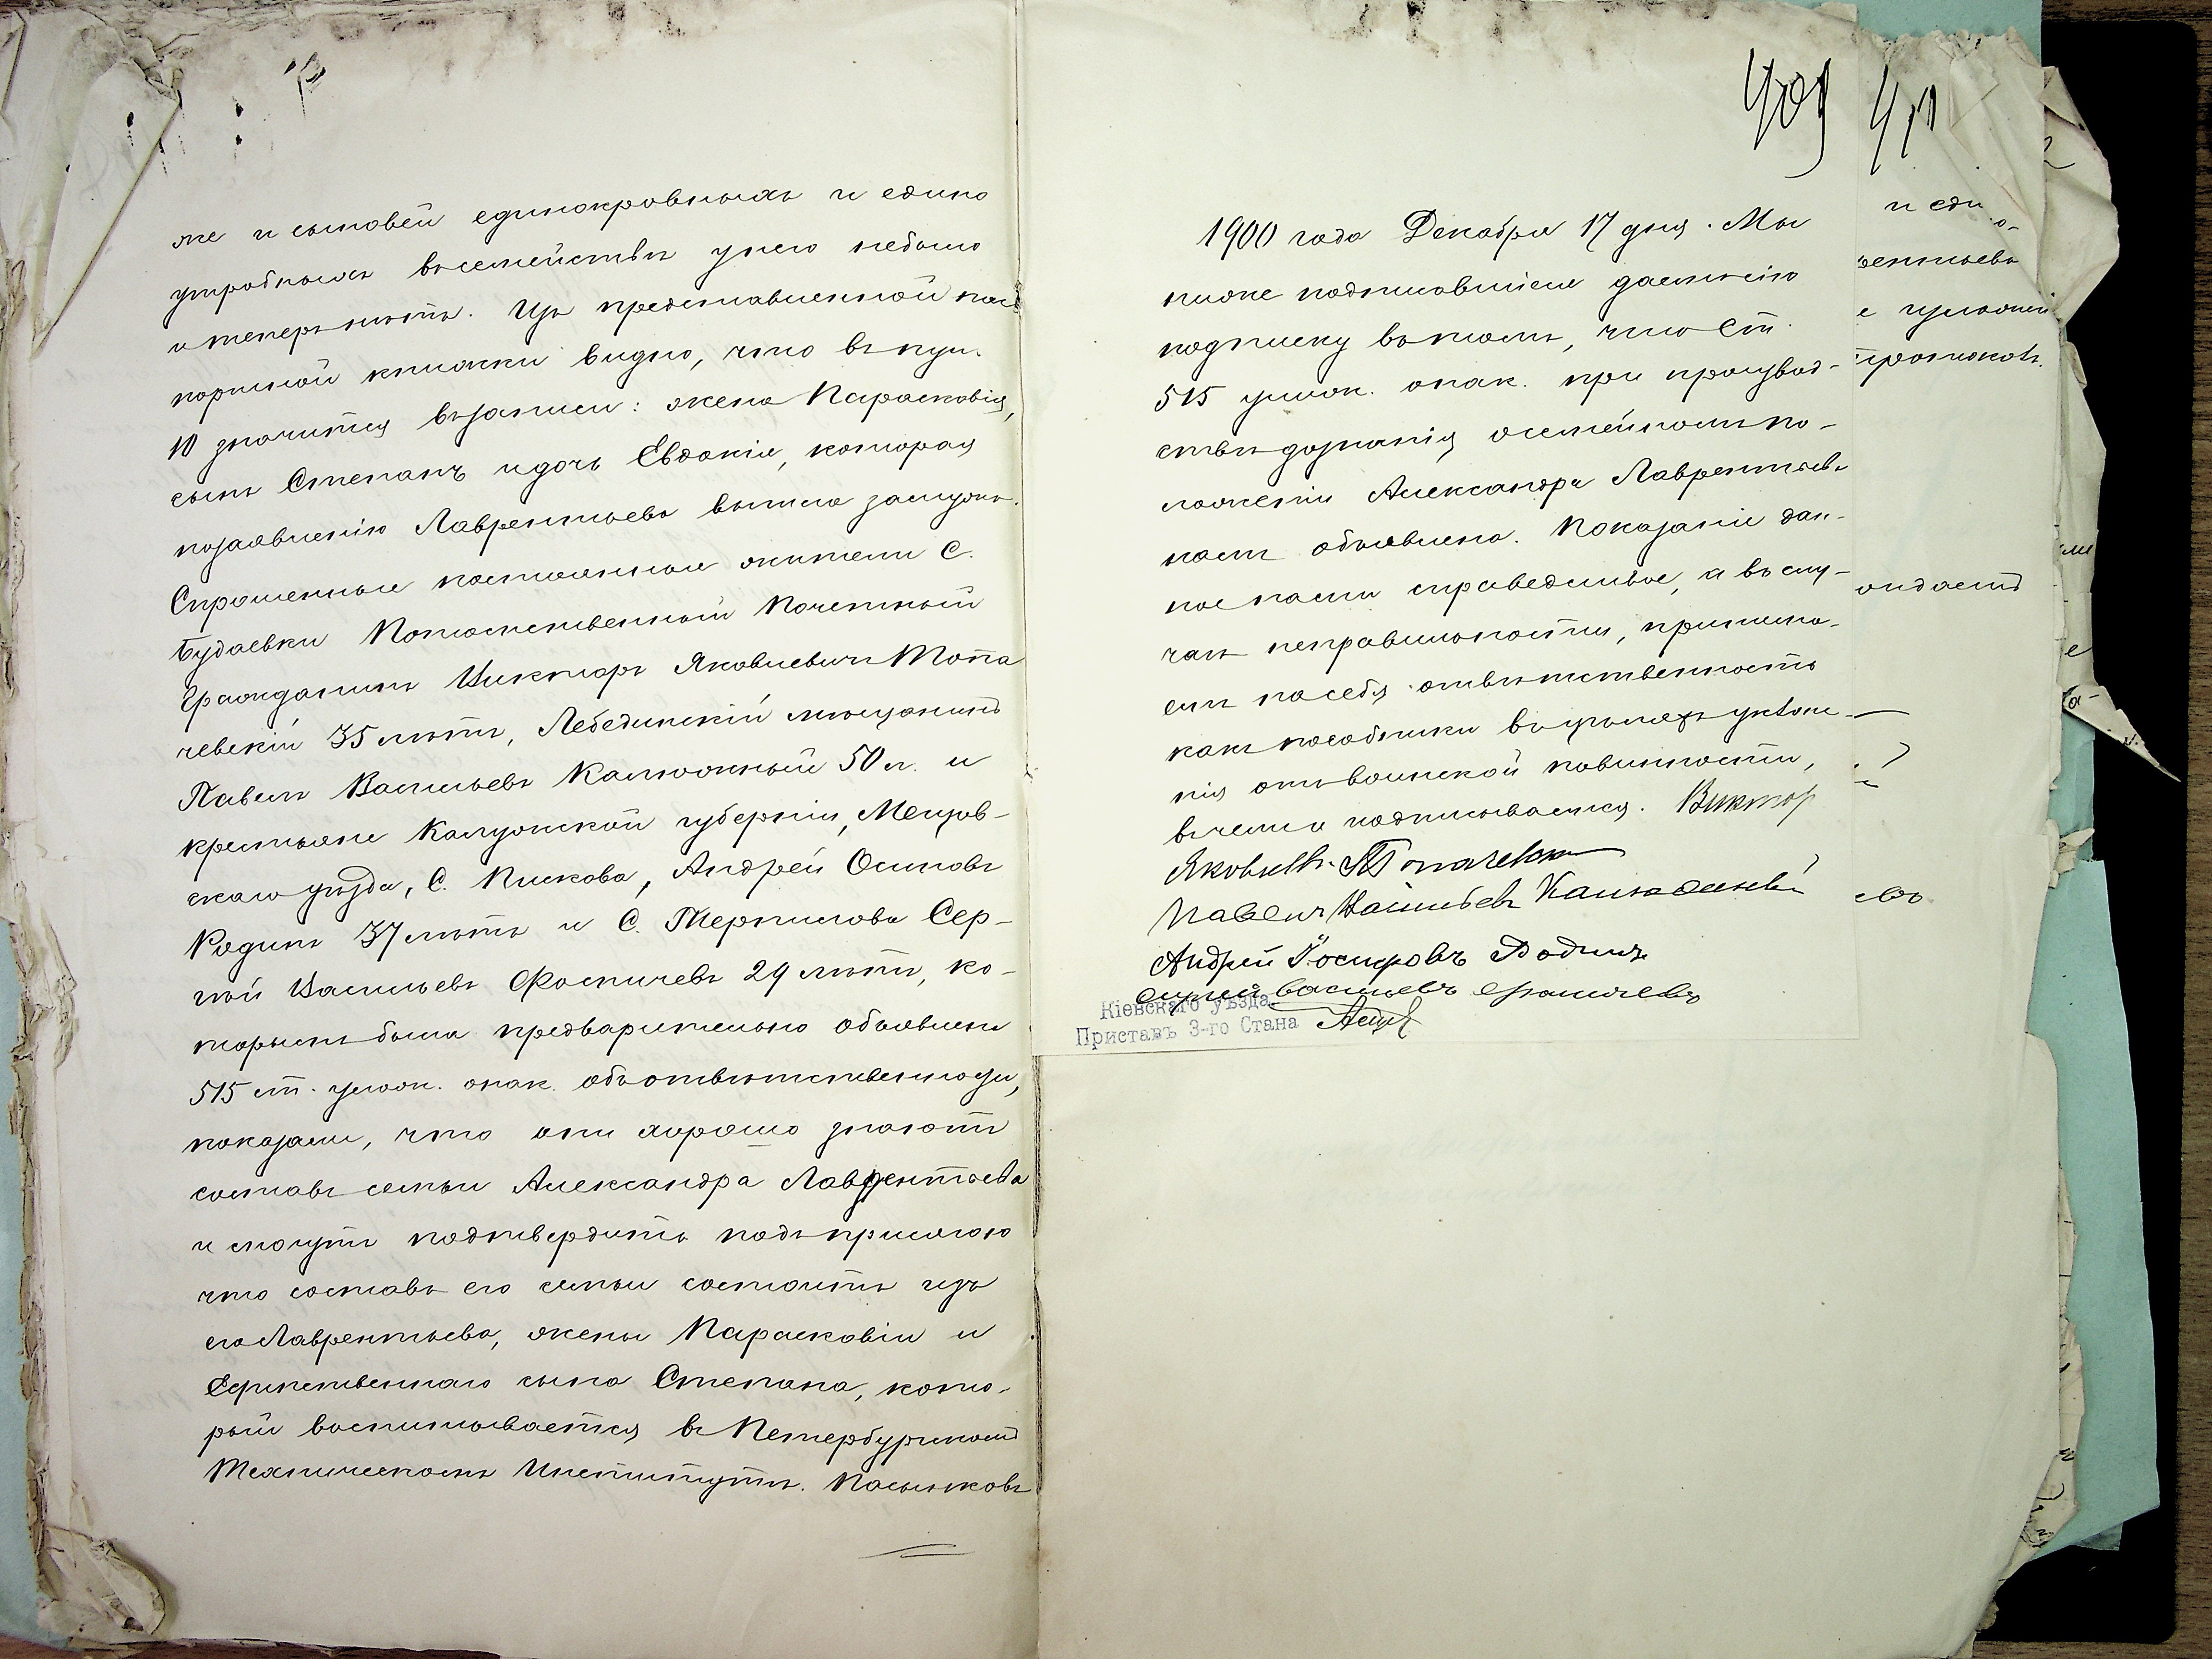 же и сыновей единокровныхъ и едино
утробныхъ въ семействѣ у него небыло
и теперь нѣтъ. Изъ представленной пас
портной книжки видно, что въ пун.
10 значится въ записи: жена Парасковія,
сынъ Степанъ и дочь Евдокія, которая
по заявленію Лаврентьева вышла замужъ.
Спрошенные постоянные жители С.
Будаевки Потомственный Почетный
Гражданинъ Викторъ Яковлевичъ Топа
чевскій 35 лѣтъ, Лебединскій мѣщанинъ
Павелъ Васильевъ Калюжный 50 л. и
крестьяне Калужской губерніи, Мещов-
скаго уѣзда, С. Пискова, Андрей Осиповъ
Родинъ 37 лѣтъ и С. Терпилова Сер-
гѣй Васильевъ Фомичевъ 29 лѣтъ, ко-
торымъ была предварительно объявлена
515 ст. улож. о нак. объ отвѣтственности,
показали, что они хорошо знаютъ
составъ семьи Александра Лаврентьева
и могутъ подтвердить подъ присягою
что составъ его семьи состоитъ изъ
его Лаврентьева, жены Параскавіи и
Единственнаго сына Степана, кото-
рый воспитывается въ Петербургскомъ
Техническомъ Институтѣ. Пасынковъ
409
1900 года Декабря 17 дня. Мы
ниже подписавшіеся даемъ сію
подписку въ томъ, что Ст.
515 улож. о нак. при производ-
ствѣ дознанія о семейномъ по-
ложеніи Александра Лаврентьева
намъ объявлена. Показаніе дан-
ное нами справедливое, а въ слу-
чаѣ неправильности, принима-
емъ на себя отвѣтственность
какъ пособники въ уклоне-
нія отъ воинской повинности,
въ чемъ и подписываемся. Виктор
Яковлев. Топачевск
Павелъ Васильевъ Калюжный
Андрей Іосиповъ Родинъ
Сергей Васильевъ Фомичевъ
Кіевскаго уѣзда
Приставъ 3-го Стана
411
и еди
рентьева
протоколъ.